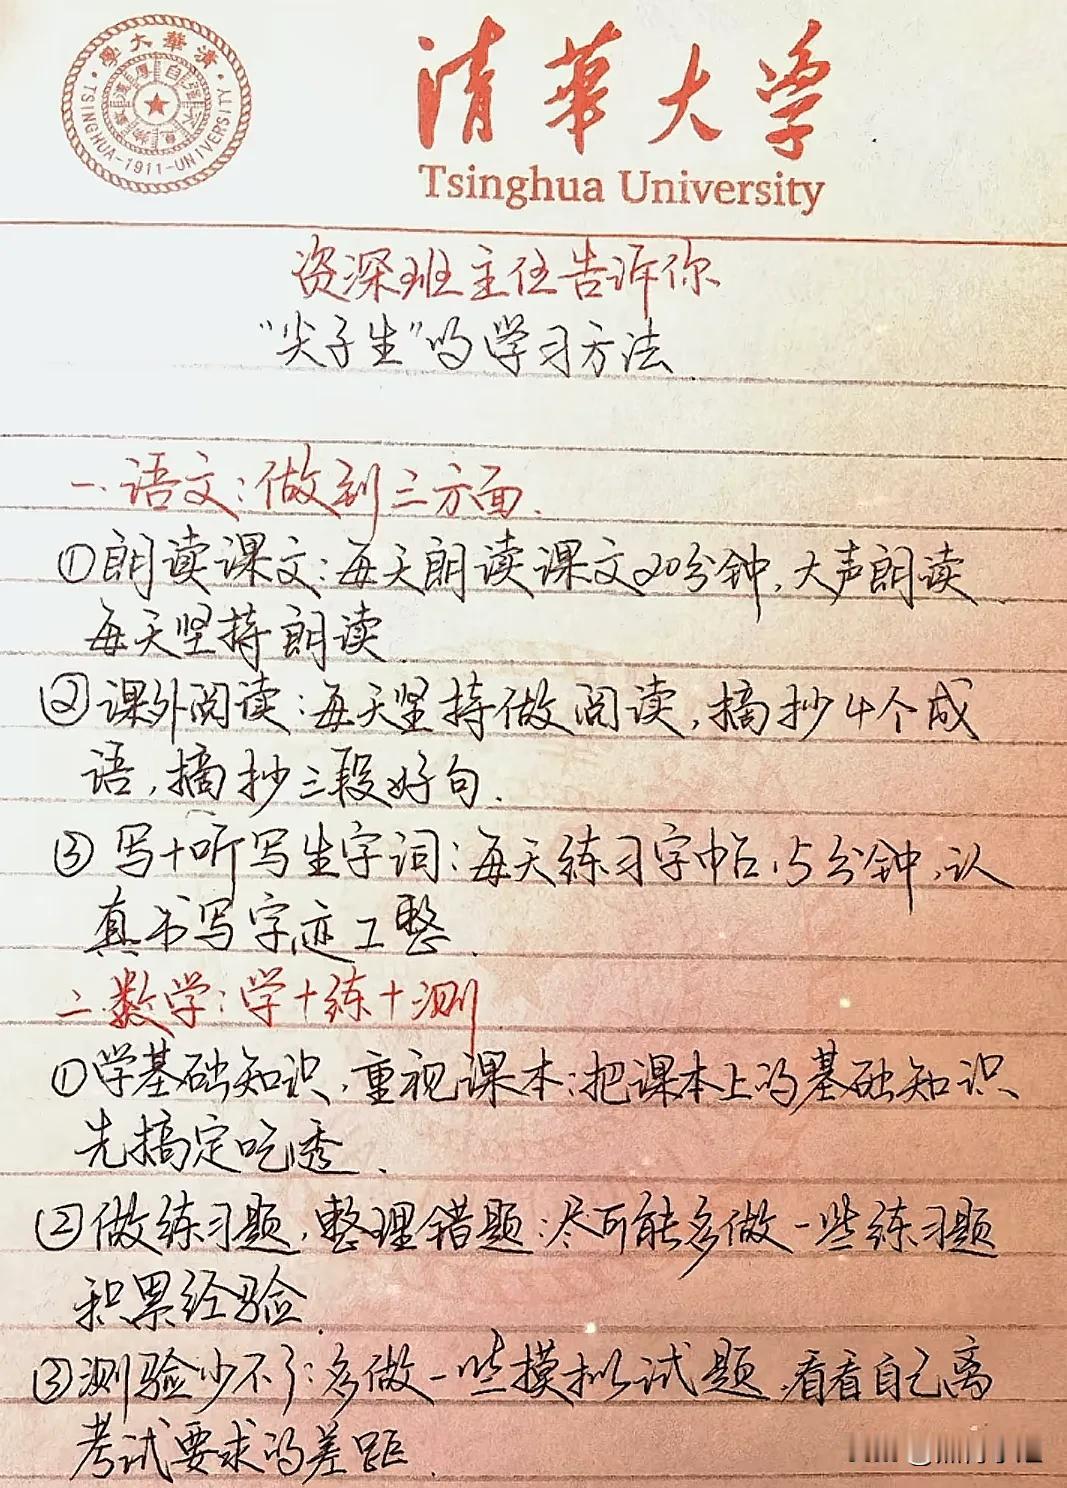 清華大学
Tsinghua University
清華大學
TSINGHUA-1911-UNIVERSITY
资深班主任告诉你
“尖子生”的学习方法
一.语文:做到三方面.
①朗读课文:每天朗读课文20分钟,大声朗读
每天坚持朗读.
②课外阅读:每天坚持做阅读,摘抄4个成
语,摘抄三段好句.
③写+听写生字词:每天练习字帖15分钟,认
真书写字迹工整.
二.数学:学+练+测
①学基础知识,重视课本:把课本上的基础知识
先搞定吃透.
②做练习题,整理错题:尽可能多做一些练习题
积累经验.
③测验少不了:多做一些模拟试题,看看自己离
考试要求的差距.